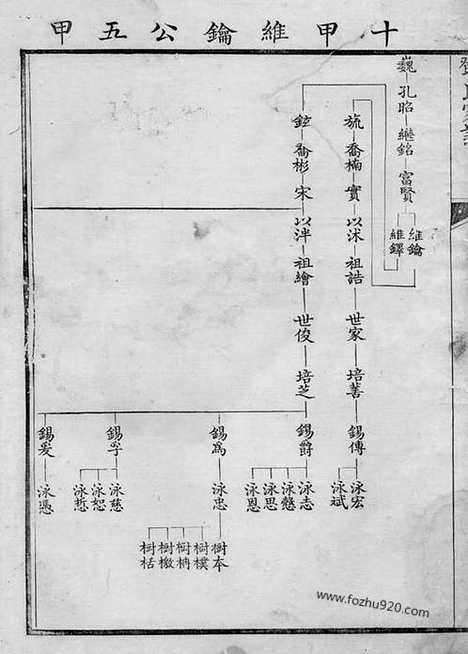 十甲維鑰公五甲
巍
孔昭
繼銘
富賢
維鑰
維鐸
旒
喬楠
實
以沭
祖誥
世家
培善
錫傳
泳宏
泳斌
喬彬
宋
以泮
祖繪
世俊
培芝
錫爵
泳志
泳思
泳恩
錫為
泳忠
樹本
樹樸
樹柟
樹檄
樹栝
錫孚
泳慈
泳恕
泳哲
錫爰
泳憑
www.fozhu920.com